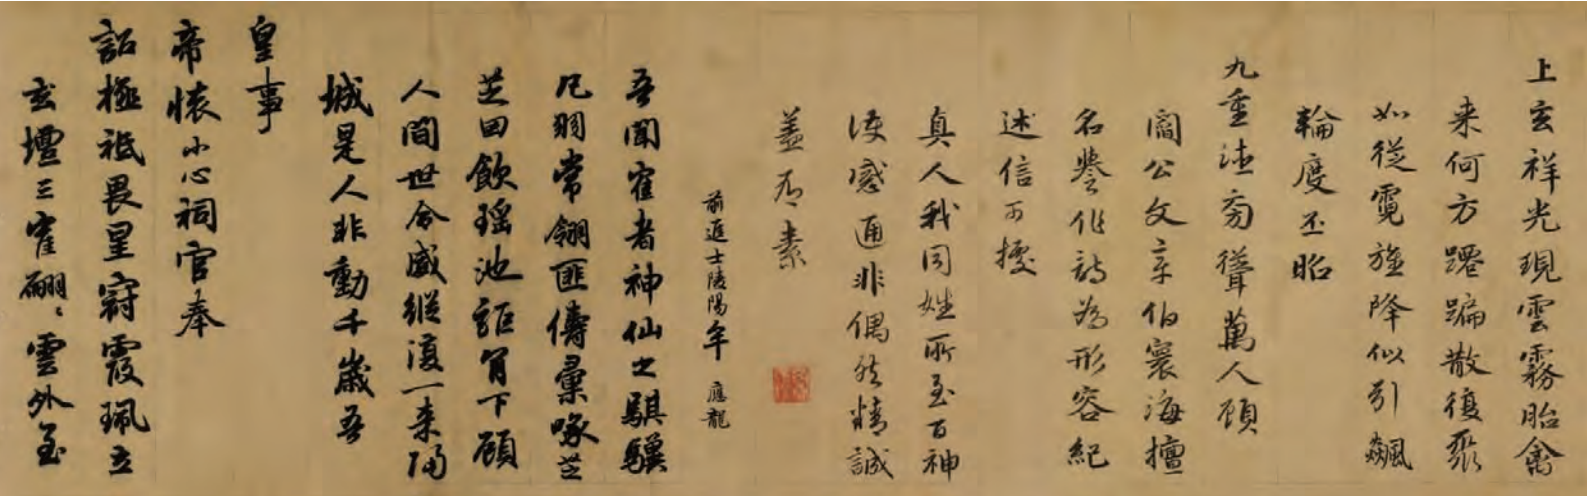 上玄祥光現雲霧胎禽
来何方躚蹁散復聚
如從霓旌降似引飆
輪度丕昭
九重德旁聳萬人頋
閻公文章伯寰海擅
名譽作詩為形容紀
述信可據
真人我同姓所至百神
護感通非偶然精誠
盖有素
前進士陵陽牟 應龍
吾聞寉者神仙之騏驥
凡羽常翎匪儔彙啄芝
芝田飲瑶池詎肯下頋
人間世令威縱復一来隔
城是人非動千歲吾
皇事
帝懐小心祠官奉
詔極祗畏星冠霞珮立
玄壇三寉翩〻雲外至